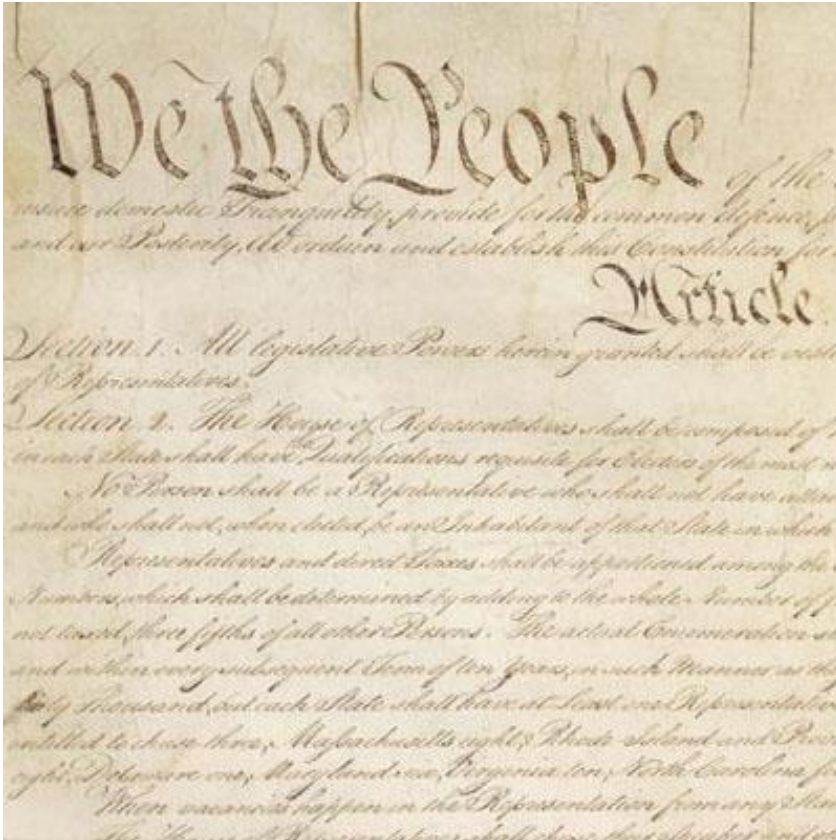 We the People of the
insure domestic Tranquility, provide for the common defence,
and our Posterity, do ordain and establish this Constitution for
Article.
Section. 1. All legislative Powers herein granted shall be
of Representatives.
Section. 2. The House of Representatives shall be composed of
in each State shall have Qualifications requisite for Electors of the most
No Person shall be a Representative who shall not have
and who shall not, when elected, be an Inhabitant of that State in which
Representatives and direct Taxes shall be apportioned among the
Numbers, which shall be determined by adding to the whole Number of
not taxed, three fifths of all other Persons. The actual Enumeration
and within every subsequent Term of ten Years, in such Manner as
thirty Thousand, but each State shall have at Least one Representative
entitled to chuse three, Massachusetts eight, Rhode Island and
eight, Delaware one, Maryland six, Virginia ten, North Carolina
When vacancies happen in the Representation from any
The House of Representatives shall chuse their